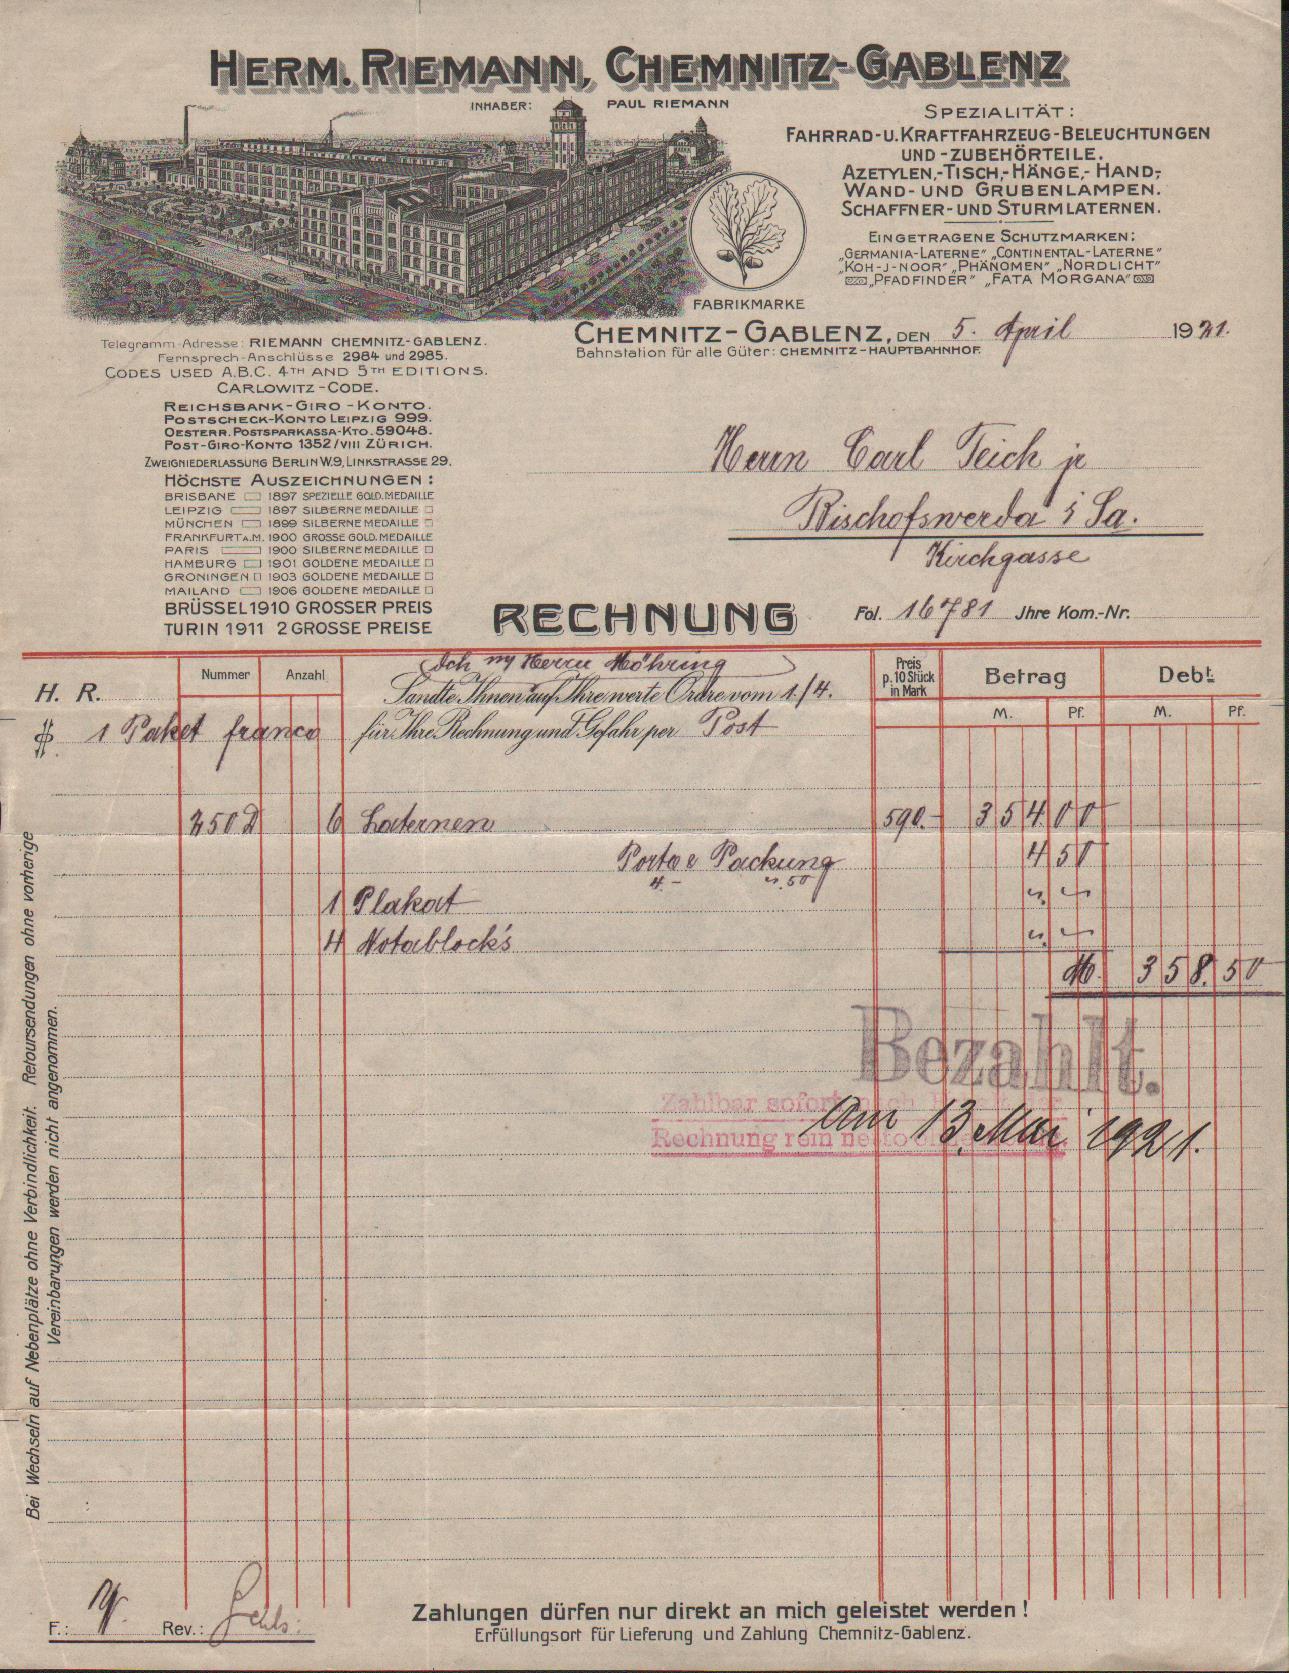 HERM. RIEMANN, CHEMNITZ-GABLENZ
INHABER: PAUL RIEMANN
SPEZIALITÄT:
FAHRRAD-U. KRAFTFAHRZEUG-BELEUCHTUNGEN
UND -ZUBEHÖRTEILE.
AZETYLEN,-TISCH,-HÄNGE,-HAND,-
WAND- UND GRUBENLAMPEN.
SCHAFFNER- UND STURMLATERNEN.
EINGETRAGENE SCHUTZMARKEN:
„GERMANIA-LATERNE" „CONTINENTAL-LATERNE"
„KOH-J-NOOR" „PHÄNOMEN" „NORDLICHT"
„PFADFINDER" „FATA MORGANA"
FABRIKMARKE
CHEMNITZ-GABLENZ, DEN 5. April 1921.
Bahnstation für alle Güter: CHEMNITZ-HAUPTBAHNHOF.
Telegramm-Adresse: RIEMANN CHEMNITZ-GABLENZ.
Fernsprech-Anschlüsse 2984 und 2985.
CODES USED A.B.C. 4TH AND 5TH EDITIONS.
CARLOWITZ-CODE.
REICHSBANK-GIRO-KONTO.
POSTSCHECK-KONTO LEIPZIG 999.
OESTERR. POSTSPARKASSA-KTO. 59048.
POST-GIRO-KONTO 1352/VIII ZÜRICH.
ZWEIGNIEDERLASSUNG BERLIN W.9, LINKSTRASSE 29.
HÖCHSTE AUSZEICHNUNGEN:
BRISBANE 1897 SPEZIELLE GOLD. MEDAILLE
LEIPZIG 1897 SILBERNE MEDAILLE
MÜNCHEN 1899 SILBERNE MEDAILLE
FRANKFURT A.M. 1900 GROSSE GOLD. MEDAILLE
PARIS 1900 SILBERNE MEDAILLE
HAMBURG 1901 GOLDENE MEDAILLE
GRONINGEN 1903 GOLDENE MEDAILLE
MAILAND 1906 GOLDENE MEDAILLE
BRÜSSEL 1910 GROSSER PREIS
TURIN 1911 2 GROSSE PREISE
Herrn Carl Teich jr
Bischofswerda i Sa.
Kirchgasse
RECHNUNG
Fol. 16781 Jhre Kom.-Nr.
H. R. Nummer Anzahl Preis p. 10 Stück in Mark Betrag Debt.
M. Pf. M. Pf.
Herrn Möhring
Sandte Ihnen auf Ihre werte Ordre vom 1./4.
für Ihre Rechnung und Gefahr per Post
1 Paket franco
250 D 6 Laternen 590.- 354 00
Porto & Packung 4 50
4.- -.50
1 Plakat
4 Notablock's
M. 358.50
Bezahlt.
Zahlbar sofort nach
Rechnung rein netto
Am 13. Mai 1921.
Bei Wechseln auf Nebenplätze ohne Verbindlichkeit. Retoursendungen ohne vorherige
Vereinbarungen werden nicht angenommen.
F.: Rev.:
Zahlungen dürfen nur direkt an mich geleistet werden!
Erfüllungsort für Lieferung und Zahlung Chemnitz-Gablenz.